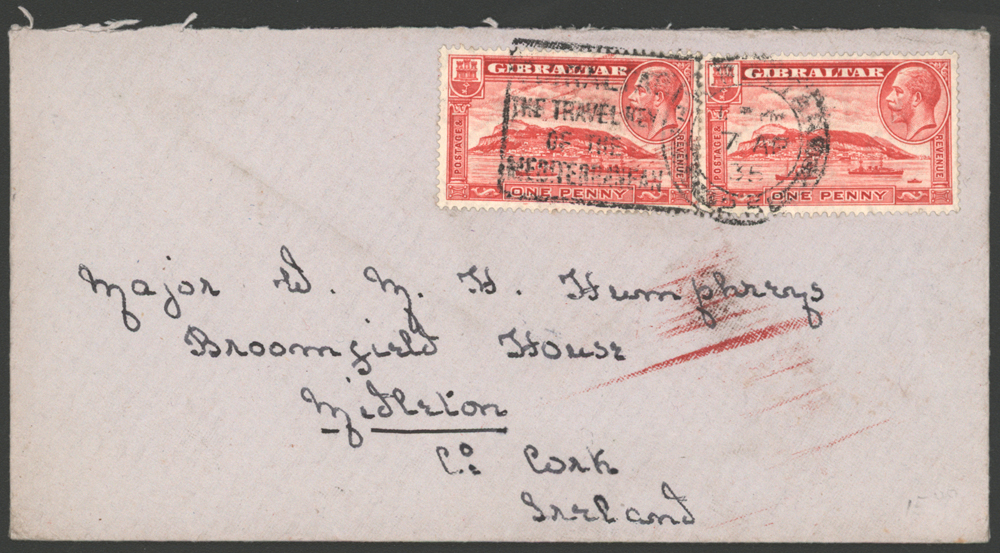 GIBRALTAR
POSTAGE &
REVENUE
ONE PENNY
GIBRALTAR
POSTAGE &
REVENUE
ONE PENNY
THE TRAVEL KEY
OF THE
MEDITERRANEAN
35
Major W. M. H. Humphreys
Broomfield House
Midleton
Co. Cork
Ireland